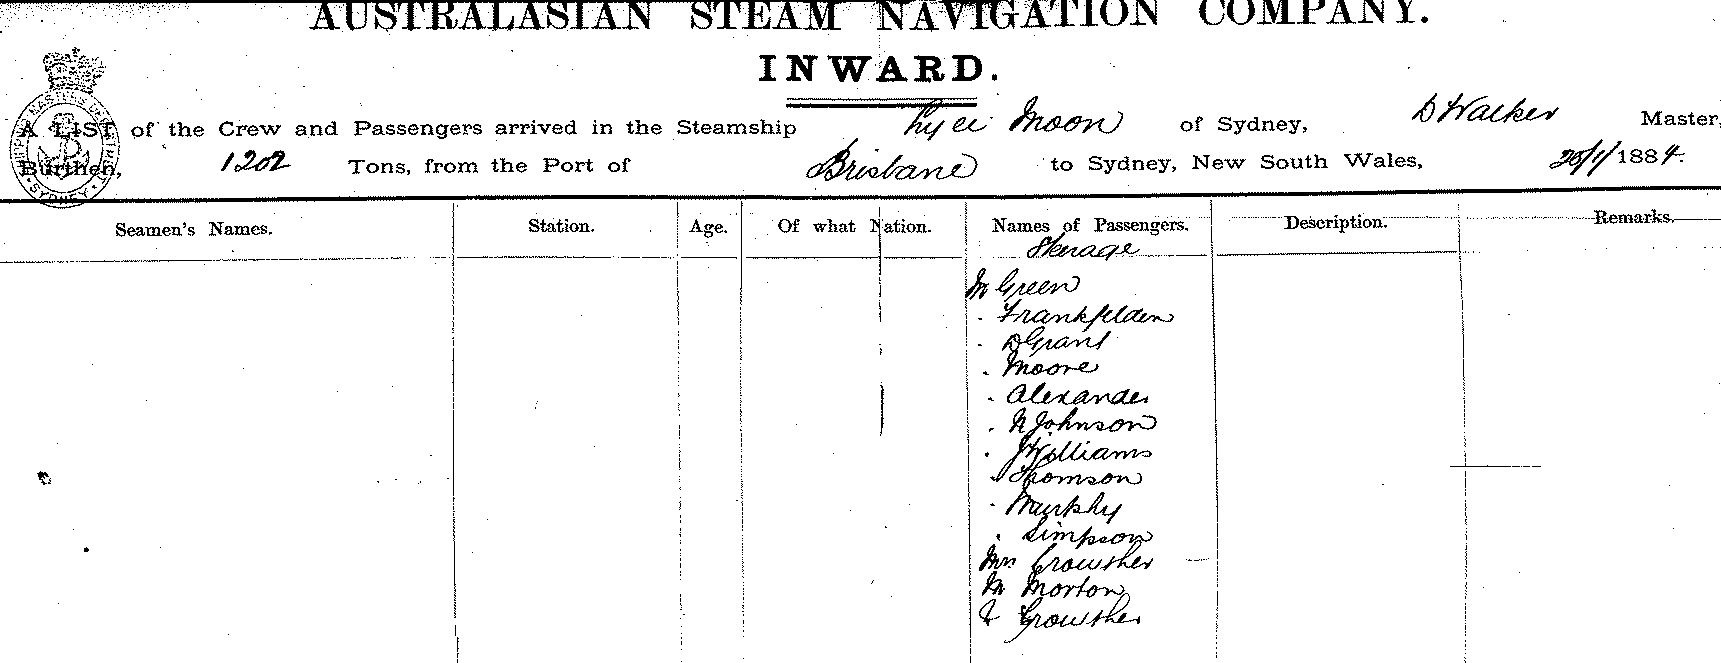 AUSTRALASIAN STEAM NAVIGATION COMPANY.
INWARD.
A LIST of the Crew and Passengers arrived in the Steamship Lyee Moon of Sydney, D Walker Master,
Burthen, 1202 Tons, from the Port of Brisbane to Sydney, New South Wales, /1/1884.
Seamen's Names. Station. Age. Of what Nation. Names of Passengers. Description. Remarks.
Steerage
M Green
" Frankfelden
" D Grant
" Moore
" Alexander
" N Johnson
" J Williams
" Thomson
" Murphy
" Simpson
Mrs Crowther
M Morton
Crowther
SYDNEY